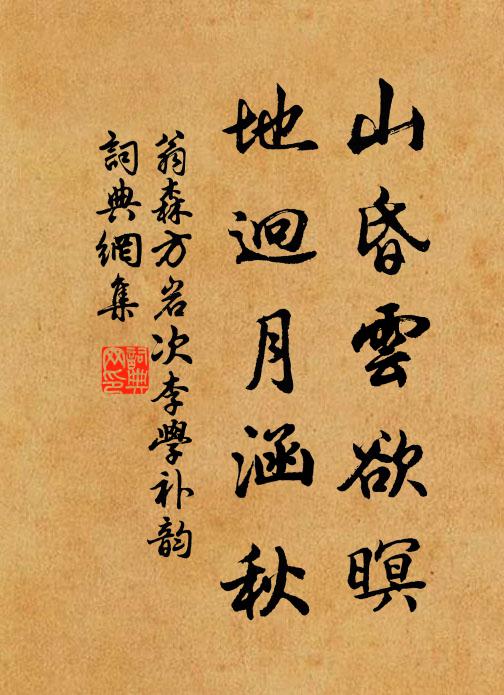 山昏雲欲暝
地迥月涵秋
翁森方岩次李學补韵
詞典網集
詞典网印